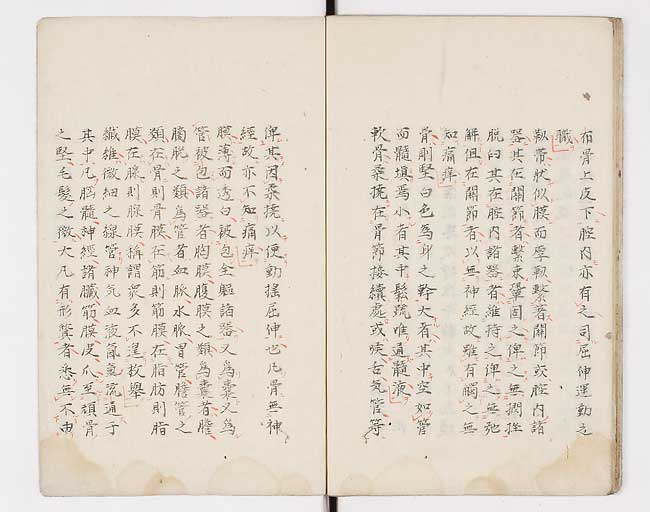 布骨上及下腔内亦有之司屈伸運動之
職
靱帯状似膜而厚靱繋著関節或腔内諸
器其在関節者繋束鞏固之俾之無
脱臼其在腔内諸器者維持之俾之無弛
解但在関節者以無神経故雖有觸之無
知痛痒
骨則堅白色為身之幹大者其中空如管
而髓填焉小者其中鬆疏唯通髓液
軟骨柔撓在骨節接續處或喉舌気管等
俾其因柔撓以便動搖屈伸也凡骨無神
経故亦不知痛痒
膜薄而透白被包全軀諸器又為嚢又為
管被包諸器者胸膜腹膜之類為嚢者膽
脱之類為管者如脈水脈胃管膽管之
類在骨則骨膜在筋則筋膜在脂肪則脂
膜在腺則腺膜稱謂衆多不遑枚舉
纎維微細之線管神気血液氤氳流通于
其中凡脳髓神経諸臓筋膜皮爪至頑骨
之堅毛髪之微大凡有形質者悉無不由